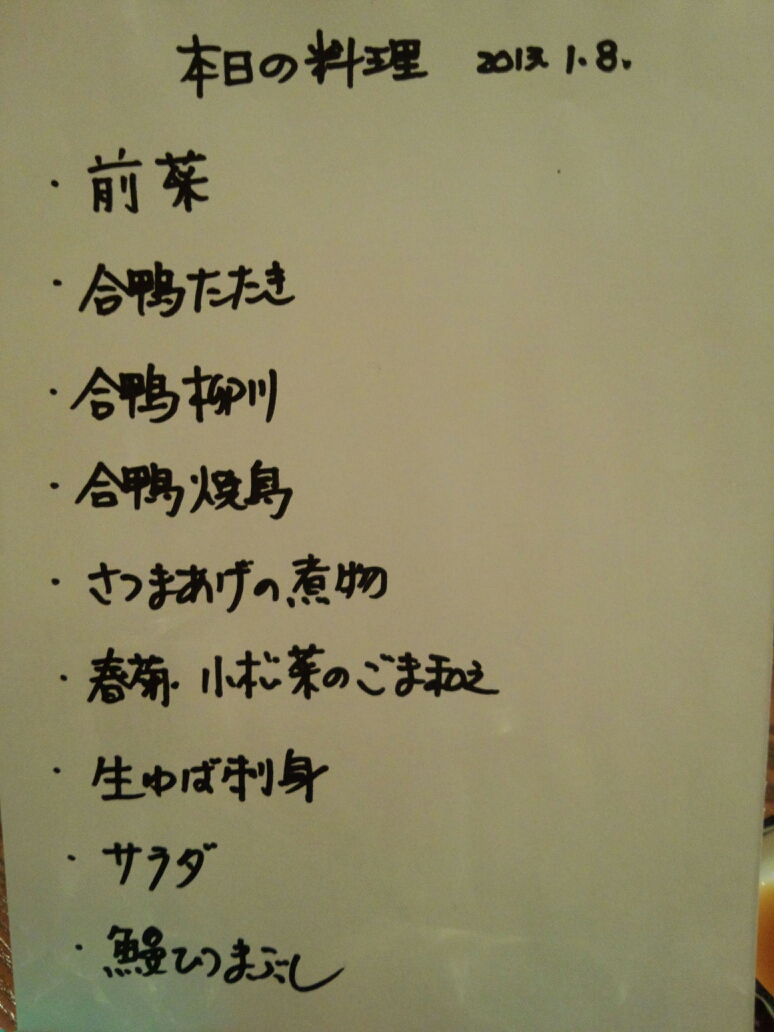 本日の料理 2013. 1. 8.
・前菜
・合鴨たたき
・合鴨柳川
・合鴨焼鳥
・さつまあげの煮物
・春菊・小松菜のごま和え
・生ゆば刺身
・サラダ
・鰻ひつまぶし